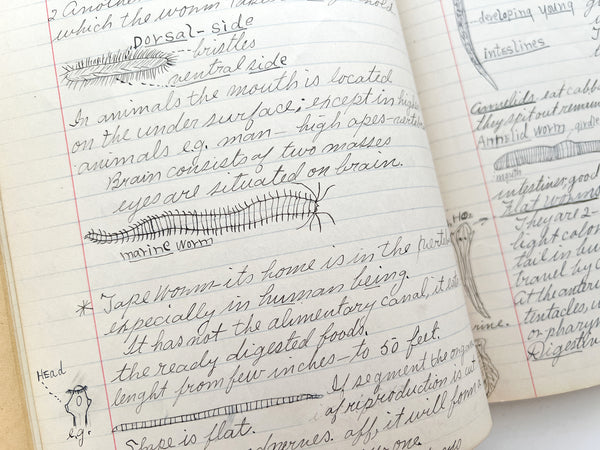 2 Another
which the worm
Dorsal-side
bristles
ventral side
In animals the mouth is located
on the under surface; except in
animals e.g. man - high apes -
Brain consists of two masses
eyes are situated on brain.
marine worm
* Tape worm - its home is in the
especially in human being.
It has not the alimentary canal, it
the ready digested foods.
lenght from few inches - to 50 feet.
Head
e.g.
If segment the
of reproduction is
Shape is flat.
nerves. off, it will form
developing young
intestines
Annelids eat
they spit out
Annelid worm, girdle
mouth
intestines good
Flat worms
They are 2-
light
tail in
travel by
At the
tentacles,
or
Digestin